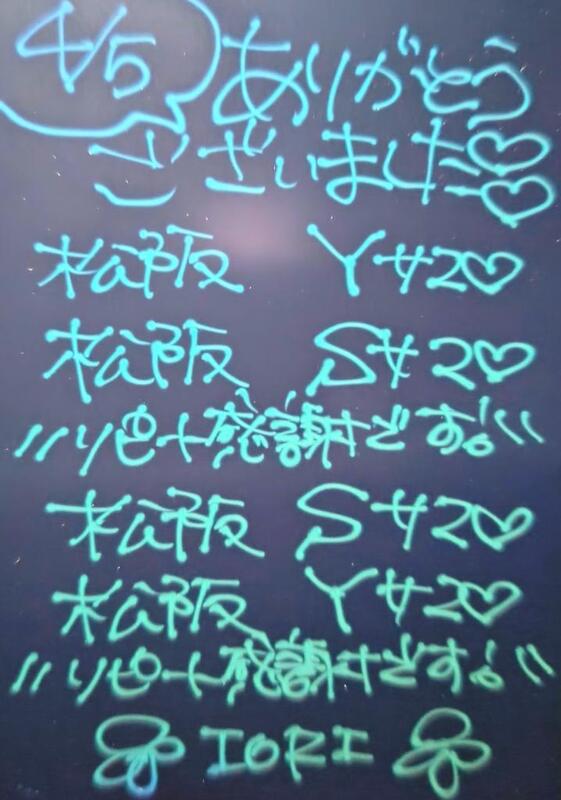 4/5 ありがとう
ございました♡♡
松阪 Yサン♡
松阪 Sサン♡
〃リピート感謝です!〃
松阪 Sサン♡
松阪 Yサン♡
〃リピート感謝です!〃
IORI